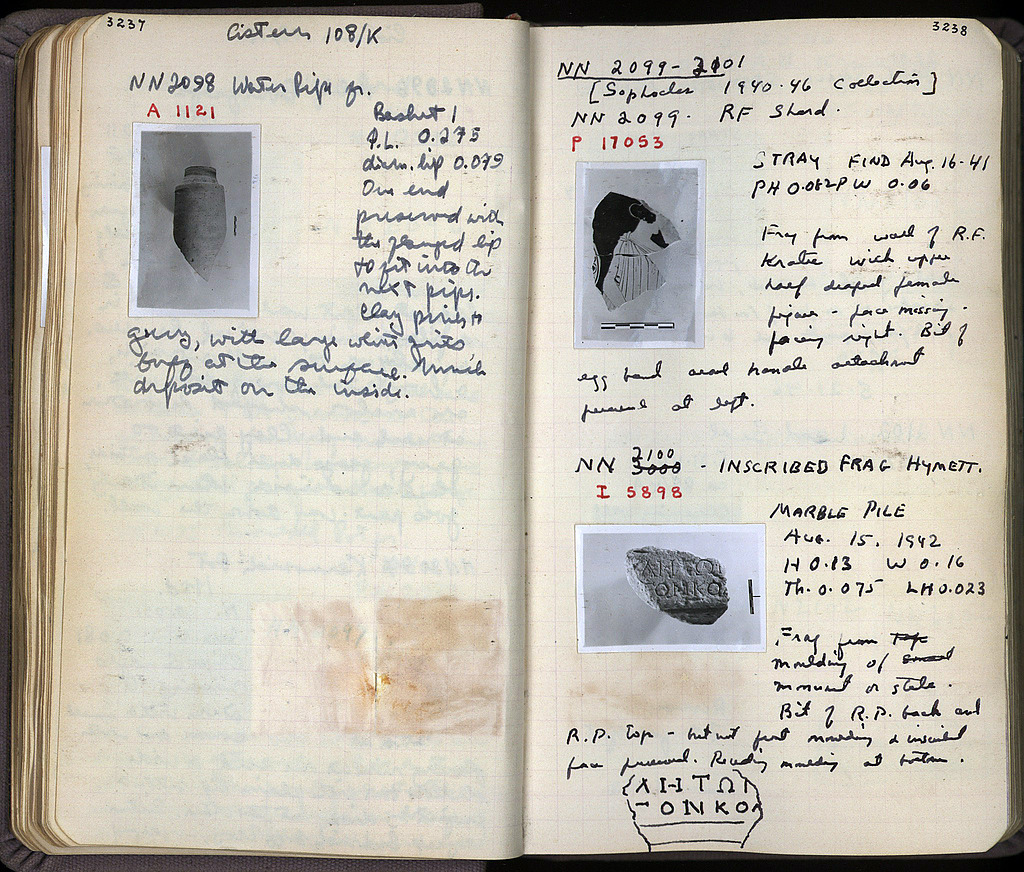 3237
Cistern 108/K
NN 2098 Water Pipe fr.
A 1121
Basket 1
P.L. 0.275
diam. lip 0.079
One end
preserved with
the flanged lip
to fit into the
next pipe.
Clay pinkish
gray, with large white grits
buff at the surface. Much
deposit on the inside.
3238
NN 2099-2101
[Sophocles 1940-46 Collection]
NN 2099. RF Sherd.
P 17053
STRAY FIND Aug. 16-41
PH 0.082 P W 0.06
Frag from wall of R.F.
Krater with upper
half draped female
figure - face missing -
facing right. Bit of
egg band and handle attachment
preserved at left.
NN 2100 3000 - INSCRIBED FRAG HYMETT.
I 5898
MARBLE PILE
AUG. 15, 1942
H 0.13 W 0.16
Th. 0.075 LH 0.023
ΛΗΤΩΙ
ΟΝΚΟ
Frag from top
moulding of small
monument or stele.
Bit of R.P. back and
R.P. top - but not front moulding & inscribed
face preserved. Receding moulding at bottom.
ΛΗΤΩΙ
ΟΝΚΟ